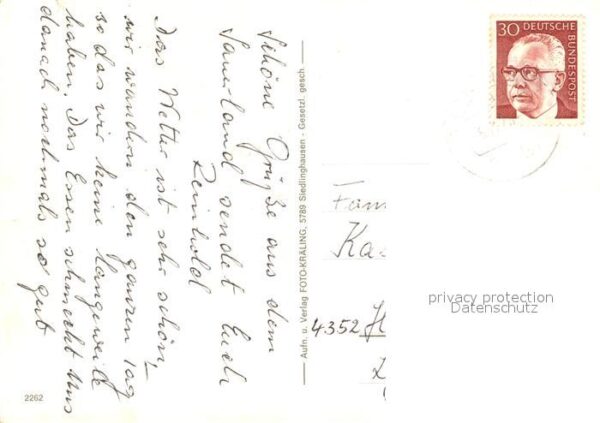 Schöne Grüße aus dem
Sauerland sendet Euch
Reinhold
Das Wetter ist sehr schön!
wir wandern den ganzen Tag
so das wir keine langeweile
haben. Das Essen schmeckt uns
danach nochmals so gut
2262
Aufn. u. Verlag FOTO-KRÄLING, 5789 Siedlinghausen - Gesetzl. gesch.
30 DEUTSCHE
BUNDESPOST
Fam
Ka
4352 H
privacy protection
Datenschutz